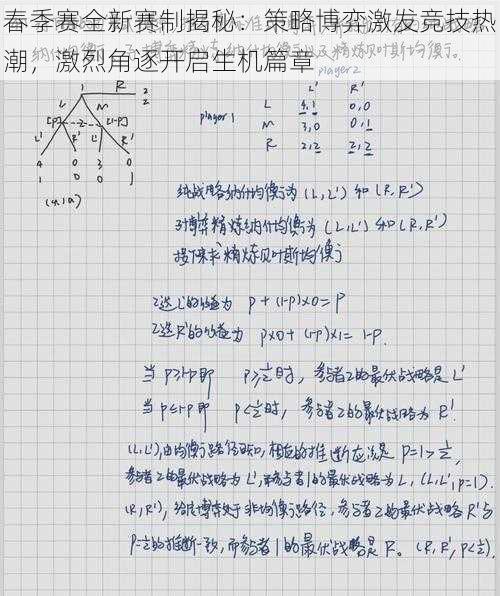 春季赛全新赛制揭秘：策略博弈激发竞技热
潮，激烈角逐开启生机篇章
player2
L' R'
1 R 2
2
L M
[P] 2 [1-P]
L' R' L' R'
4 0 3 0
1 0 0 1
(4,1a)
player1 L 4,1 0,0
M 3,0 0,1
R 2,2 2,2
纯战略纳什均衡为 (L,L') 和 (R,R')
子博弈精炼纳什均衡为 (L,L') 和 (R,R')
接下来求精炼贝叶斯均衡
2选L'的收益为 P+(1-P)×0=P
2选R'的收益为 P×0+(1-P)×1=1-P.
当 P≥1-P即 P≥½时，参与者2的最优战略是 L'
当 P≤1-P即 P<½时，参与者2的最优战略为 R'.
(L,L'),由均衡路径可知,相应的推断应该是 P=1>½,
参与者2的最优战略为 L',而参与者1的最优战略为 L, (L,L',P=1).
(R,R'), 给定博弈处于非均衡路径，参与者2的最优战略R'与
P<½的推断一致,而参与者1的最优战略是 R。(R,R',P<½).